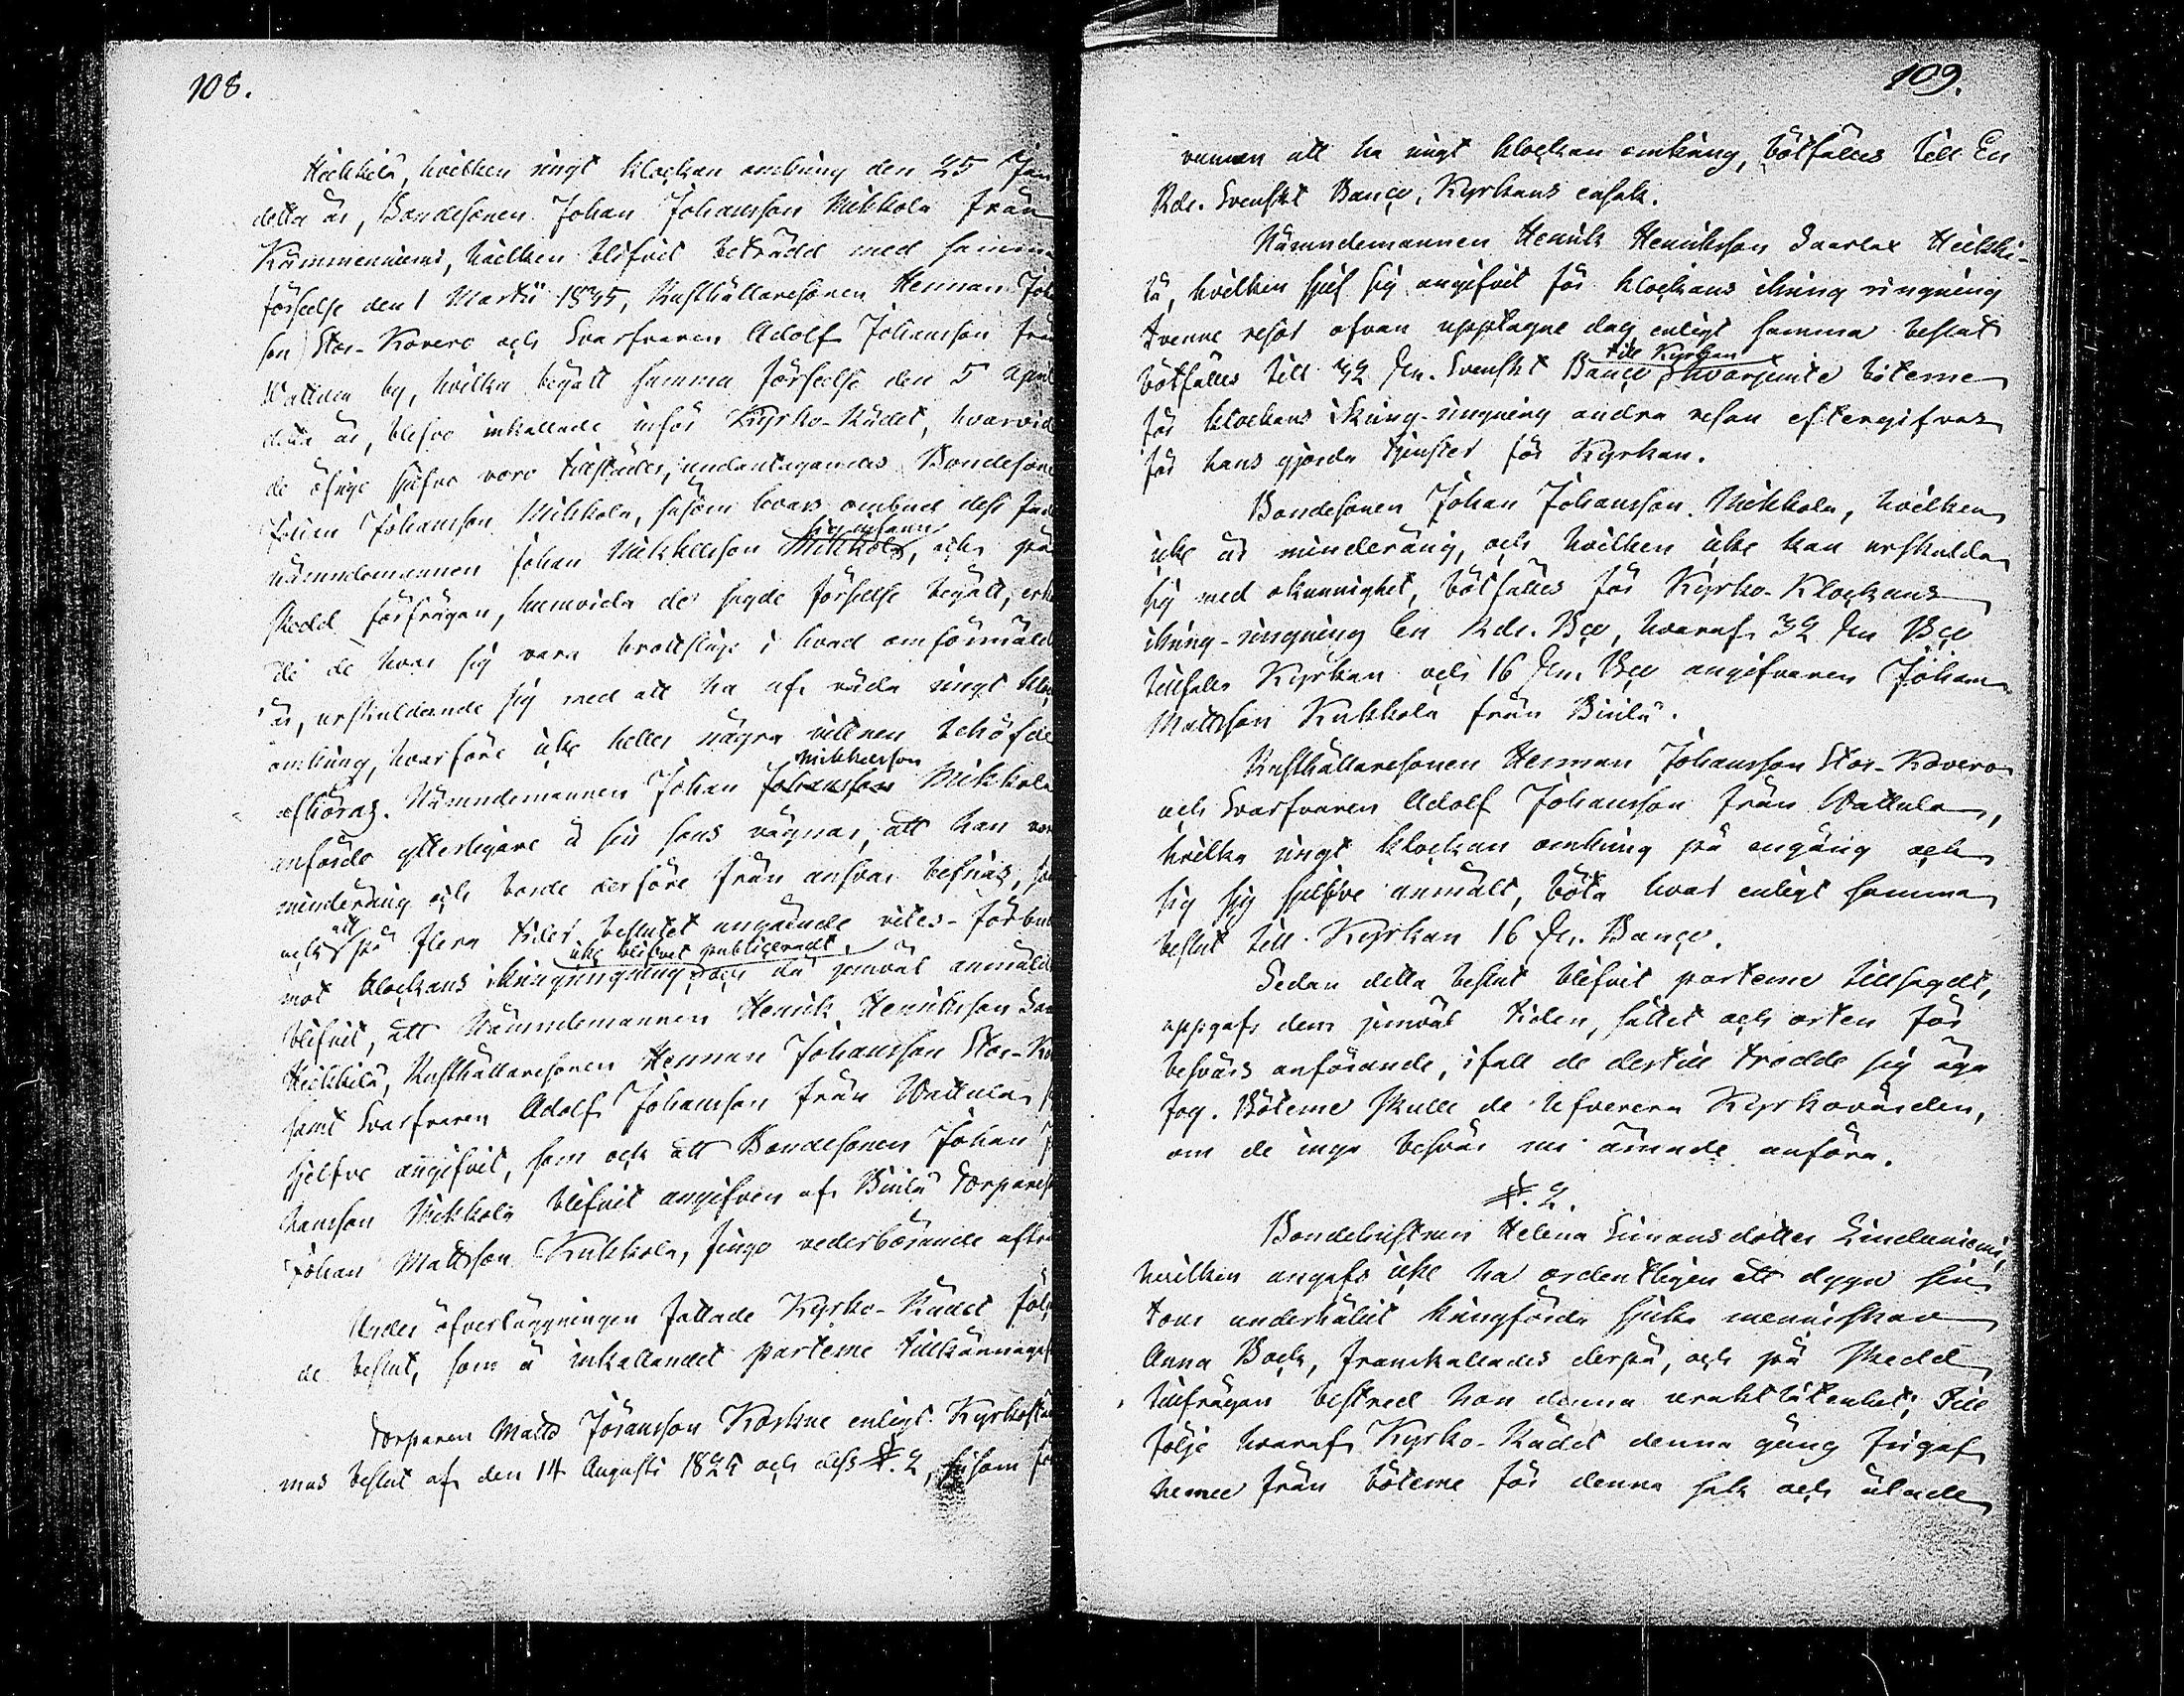 108.
Heikkilä, hvilken ringt klockan omkring den 25 Jan
detta år, Bondesonen Johan Johansson Mikkola från
Kummenniemi, hvilken blifvit beträdd med samma
förseelse den 1 Martii 1835, Rusthållaresonen Herman Joh
son Stor-Kovero och Svarfvaren Adolf Johansson från
Wattula by, hvilka begått samma förseelse den 5 April
detta år, blefvo inkallade inför Kyrko-Rådet, hvarvid
de öfrige sjelfve voro tillstädes, undantagandes Bondesonen
Johan Johansson Mikkola, såsom hvars ombud dess fad
nämndemannen Johan Mikkelsson Mikkola, och på
skedd förfrågan, huruvida de sagde förseelse begått, erkä
de de hvar sig vara brottslige i hvad omförmäldt
är, urskuldande sig med att ha af våda ringt kloc
omkring, hvarföre icke heller några vittnen behöfde
Mikkelsson
afhöras. Nämndemannen Johan Johansson Mikkola
anförde ytterligare å sin sons vägnar, att han vore
minderårig och borde derföre från ansvar befrias,
att
och på flera tider beslutet angående vites-förbud
icke blifvit publiceradt
mot klockans ikringringning, och då jemväl anmäldt
blifvit, att Nämndemannen Henrik Henriksson
Heikkilä, Rusthållaresonen Herman Johansson Stor-Ko
samt Svarfvaren Adolf Johansson från Wattula
sjelfve angifvit, som ock att Bondesonen Johan J
hansson Mikkola blifvit angifven af Torpareso
Johan Mattsson Kukkola, fingo vederbörande afträ
Under öfverläggningen fattade Kyrko-Rådet följ
de beslut, som å inkallandet parterne tillkännagaf
Torparen Matts Jöransson Koskue enligt Kyrkostä
mas beslut af den 14 Augusti 1825 och dess §. 2, såsom
109.
vunnen att ha ringt klockan omkring, bötfälles till En
Rdr. Svenskt Banco, Kyrkans ensak.
Nämndemannen Henrik Henriksson Heikki-
lä, hvilken sjelf sig angifvit för klockans ikring ringning
tvenne resor ofvan upptagne dag enligt samma beslut
till Kyrkan
bötfälles till 32 sk. Svenskt Banco, hvarjemte böterne
för klockans ikring-ringning andra resan eftergifvas
för hans gjorda tjenster för Kyrkan.
Bondesonen Johan Johansson Mikkola, hvilken
icke är minderårig, och hvilken icke kan urskulda
sig med okunnighet, bötfälles för Kyrko-Klockans
ikring-ringning En Rdr. Bco, hvaraf 32 sk Bco
tillfaller Kyrkan och 16 sk. Bco angifvaren Johan
Mattsson Kukkola från
Rusthållaresonen Herman Johansson Stor-Kovero
och Svarfvaren Adolf Johansson från Wattula,
hvilka ringt klockan omkring på engång och
sig sig sjelfve anmält, böta hvar enligt samma
beslut till Kyrkan 16 sk. Banco.
Sedan detta beslut blifvit parterne tillsagdt,
uppgafs dem jemväl tiden, sättet och orten för
besvärs anförande, ifall de dertill trodde sig äga
fog. Böterne skulle de lefverera Kyrkovärden,
om de inga besvär nu ärnade anföra.
§. 2.
Bondehustrun Helena Simonsdotter Lindunicmi,
hvilken angafs icke ha ordentligen ett dygn
underhållit kringförda sjuka menniskan
Anna Bock, framkallades derpå, och på skedd
tillfrågan bestred hon denna uraktlåtenhet; Till
följe hvaraf Kyrko-Rådet denna gång frigaf
henne från böterne för denna sak och ålade